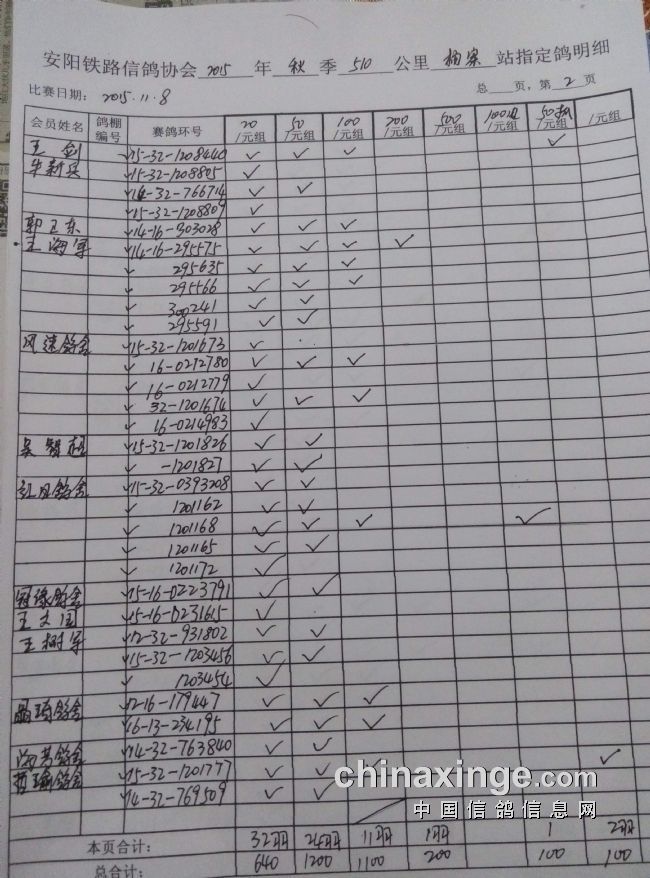 安阳铁路信鸽协会 2015 年 秋 季 510 公里 站指定鸽明细
比赛日期: 2015.11.8 总 页, 第 2 页
会员姓名 鸽棚编号 赛鸽环号 20/元组 50/元组 100/元组 200/元组 500/元组 100 /元组 50 /元组 /元组
王剑 ✓15-32-1208440 ✓ ✓ ✓ ✓
牛新兵 ✓15-32-1208805 ✓
✓14-32-766714 ✓ ✓
✓15-32-1208809 ✓
郭卫东 ✓14-16-303028 ✓ ✓ ✓
王海军 ✓14-16-295575 ✓ ✓ ✓ ✓
✓ 295635 ✓ ✓ ✓
✓ 295566 ✓ ✓ ✓
✓ 300241 ✓ ✓
✓ 295591 ✓ ✓
风速鸽舍 ✓15-32-1201673 ✓
✓ 16-0212780 ✓ ✓ ✓
✓ 16-0212779 ✓
✓ 32-1201674 ✓ ✓ ✓
✓ 16-0214983 ✓
吴智超 ✓15-32-1201826 ✓ ✓
✓ -1201827 ✓ ✓
红凡鸽舍 ✓15-32-0393208 ✓ ✓
✓ 1201162 ✓ ✓
✓ 1201168 ✓ ✓ ✓ ✓
✓ 1201165 ✓ ✓
✓ 1201172 ✓
冠缘鸽舍 ✓15-16-0223791 ✓ ✓
王文国 ✓15-16-0231615 ✓
王树军 ✓12-32-931802 ✓ ✓
✓15-32-1203456 ✓ ✓
✓ 1203454 ✓
晶琦鸽舍 ✓12-16-179447 ✓ ✓ ✓
✓16-13-234195 ✓ ✓ ✓
海芳鸽舍 ✓14-32-763840 ✓ ✓ ✓
鸽舍 ✓15-32-1201777 ✓ ✓ ✓
✓14-32-769509 ✓ ✓
chinaxinge.com
中国信鸽信息网
本页合计: 32羽 24羽 11羽 1羽 1 2羽
总合计: 640 1200 1100 200 100 100